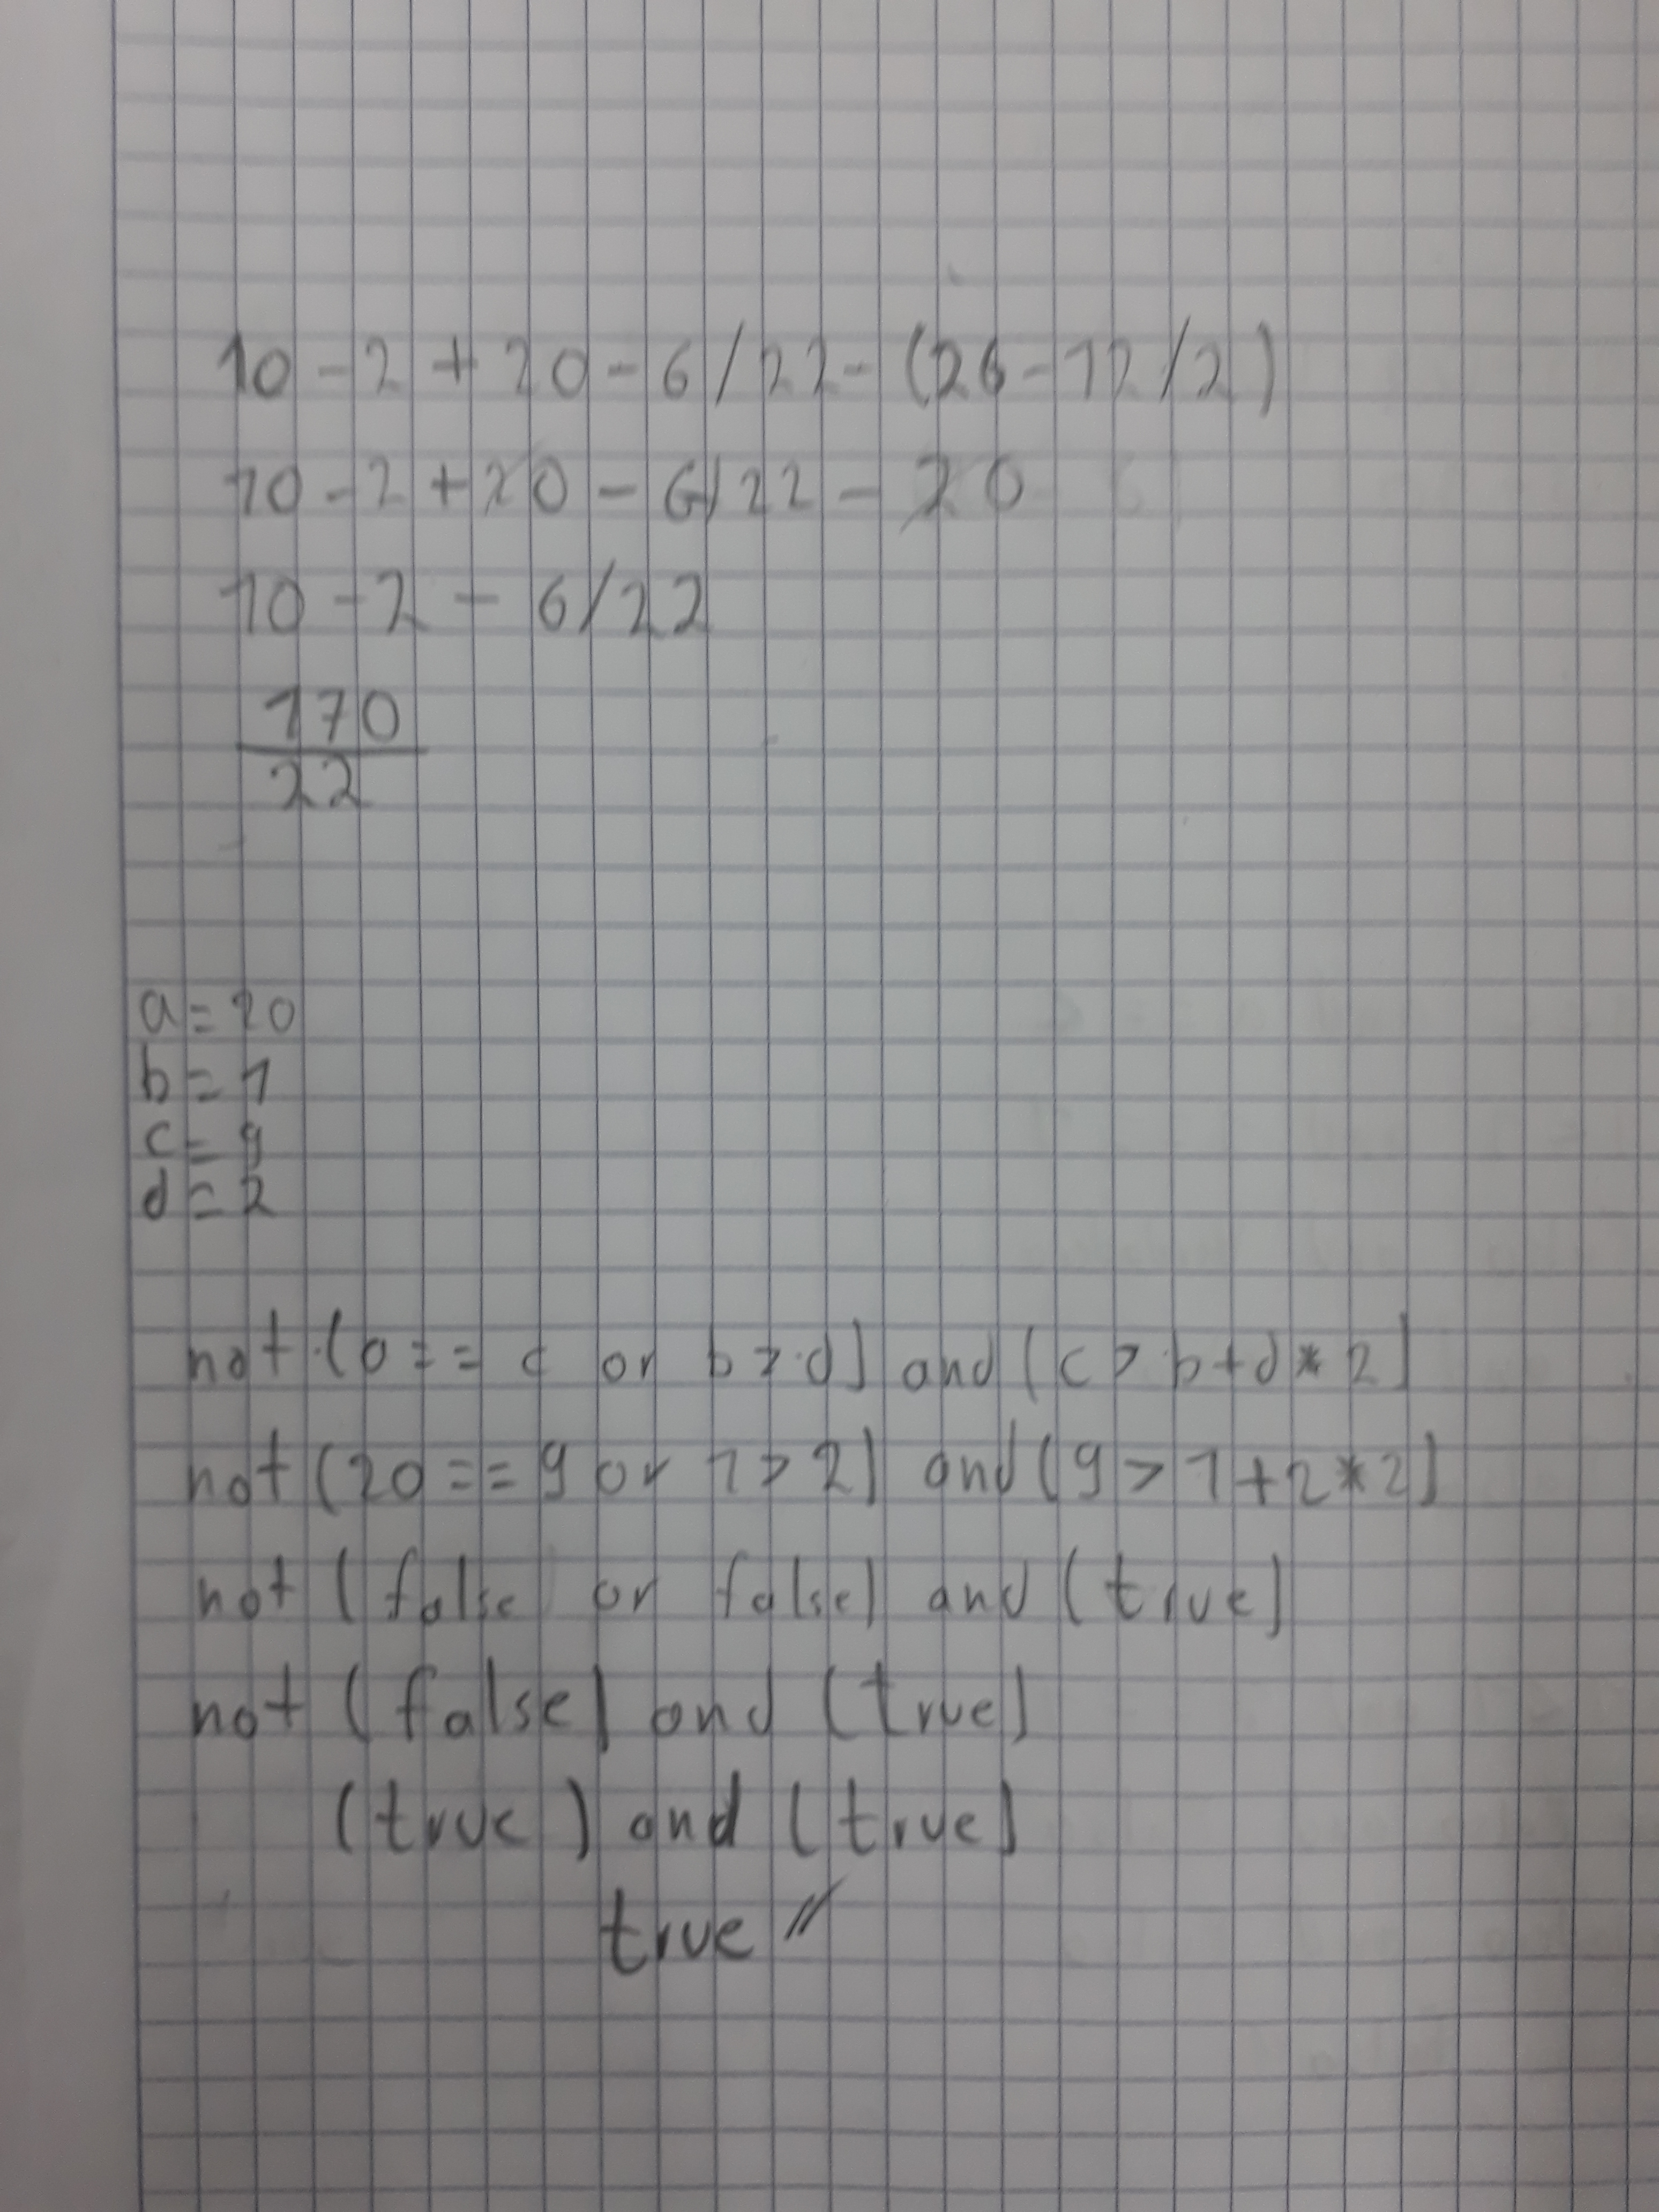 10 - 2 + 20 - 6 / 22 - (26 - 12 / 2)
10 - 2 + 20 - 6 / 22 - 20
10 - 2 - 6 / 22
170
22
a = 20
b = 1
c = 9
d = 2
not (a == c or b > d) and (c > b + d * 2)
not (20 == 9 or 1 > 2) and (9 > 1 + 2 * 2)
not (false or false) and (true)
not (false) and (true)
(true) and (true)
true //